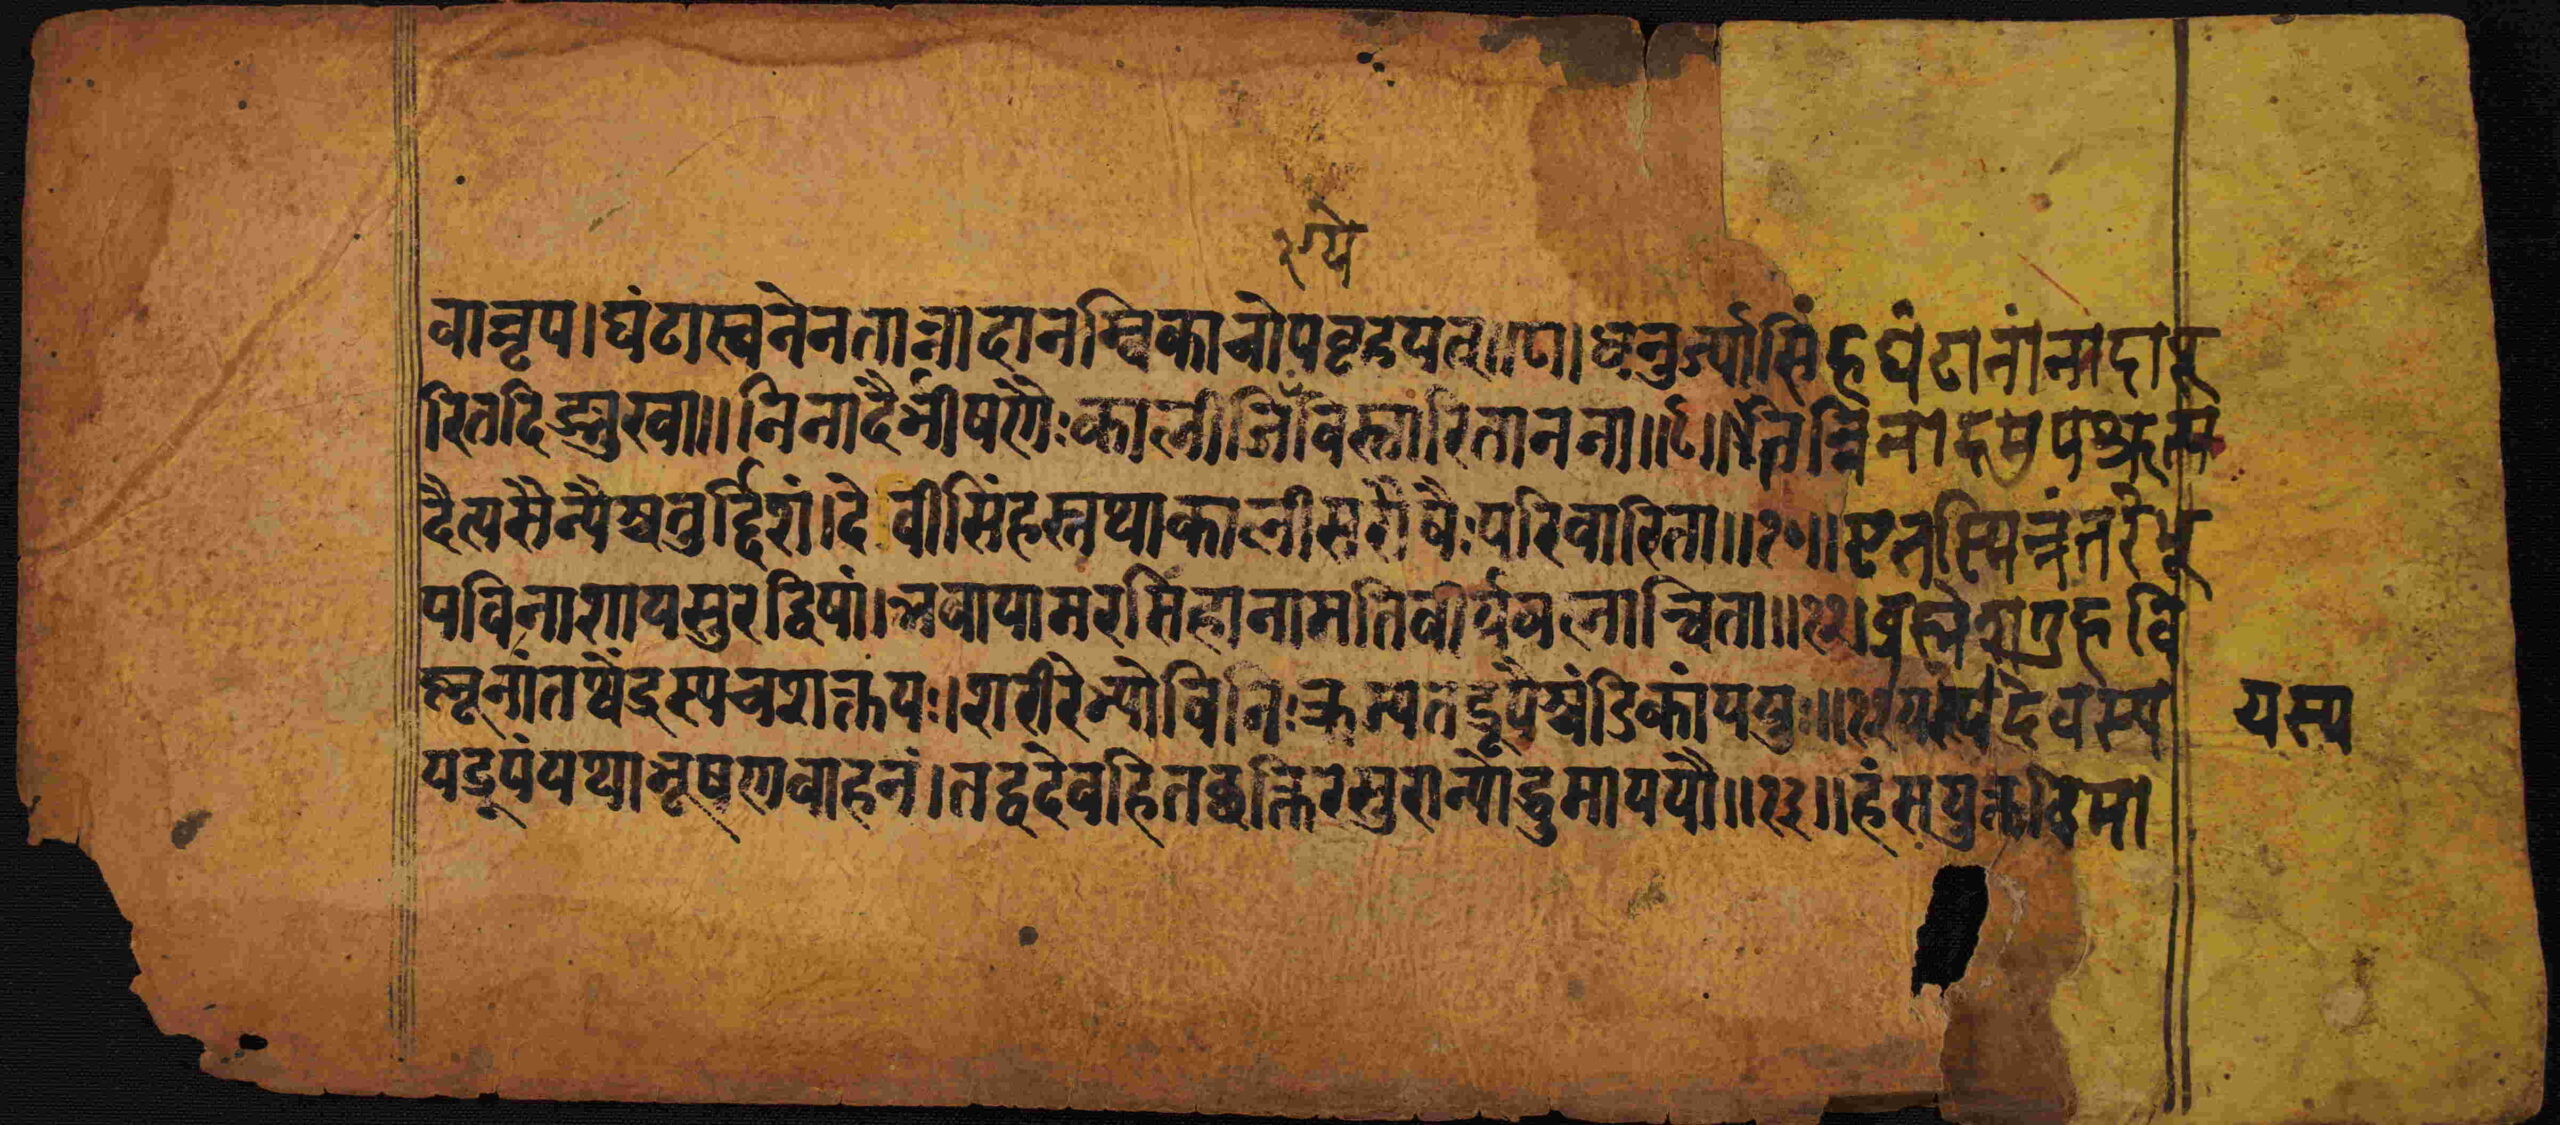 २ग्ये
वान्नृप। घंटास्वनेन तान्नादानम्बिका चोपवृंहयत्॥८॥ धनुर्ज्यासिंहघंटानां नादापू
रितदिङ्मुखा॥ निनादैर्भीषणैः काली जिग्ये विस्तारितानना॥९॥ तन्निनादमुपश्रुत्य
दैत्यसैन्यैश्चतुर्द्दिशं। देवी सिंहस्तथा काली सरोषैः परिवारिता॥१०॥ एतस्मिन्नंतरे भू
प विनाशाय सुरद्विषां। भवायामरसिंहानामतिवीर्यबलान्विता॥११॥ ब्रह्मेशगुहवि
ष्णूनां तथेंद्रस्य च शक्तयः। शरीरेभ्यो विनिःक्रम्य तद्रूपैश्चंडिकां ययुः॥१२॥ यस्य देवस्य
यस्य
यद्रूपं यथा भूषणवाहनं। तद्वदेव हि तच्छक्तिरसुरान्योद्धुमाययौ॥१३॥ हंसयुक्तविमा